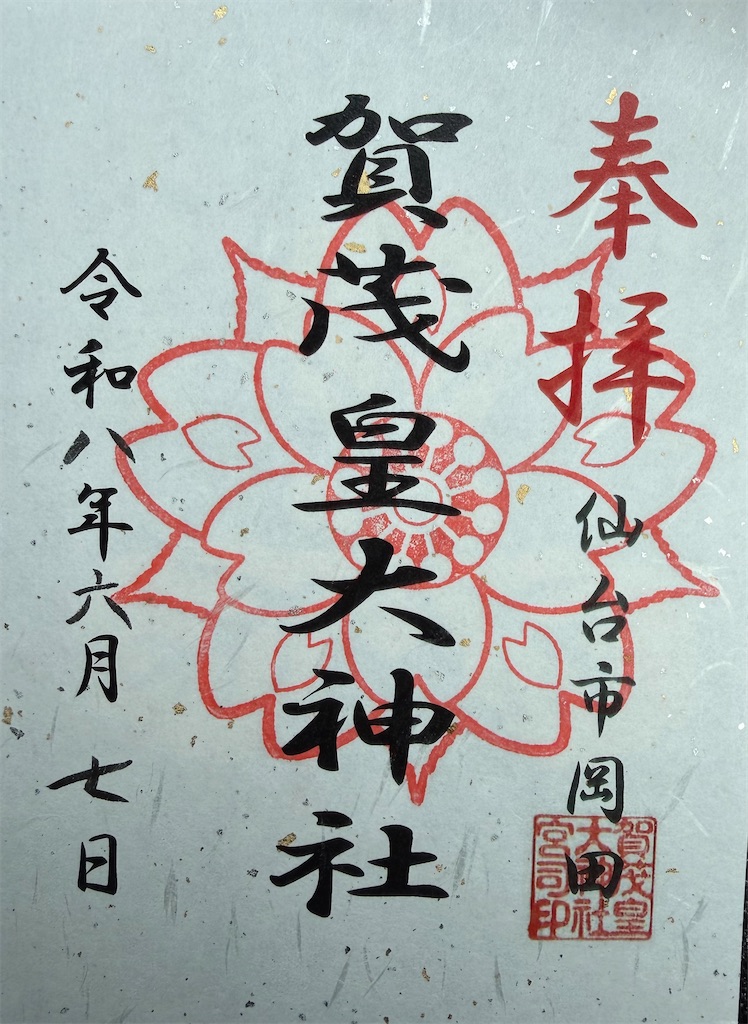 奉拝
仙台市岡田
賀茂皇大神社
令和八年六月七日
賀茂皇
大神社
宮司印